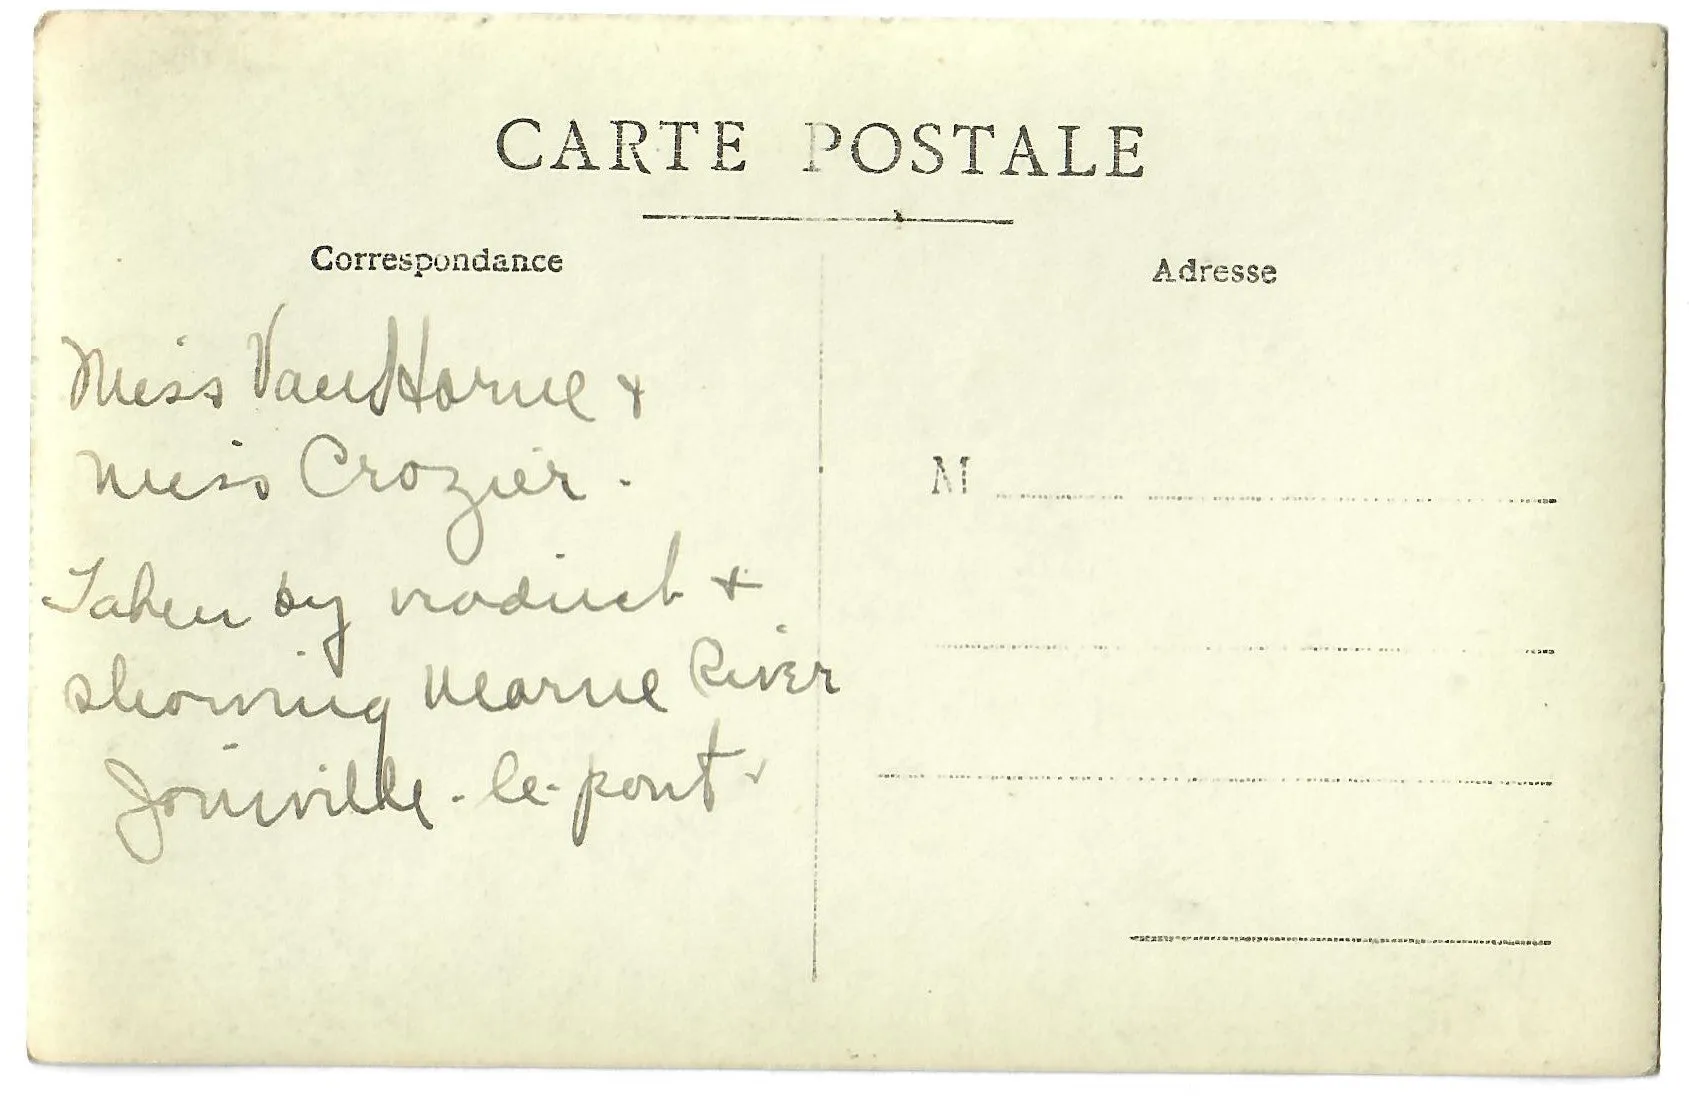 CARTE POSTALE
Correspondance
Adresse
Miss Van Horne &
Miss Crozier.
Taken by viaduct &
showing Marne River
Joinville-le-pont
M